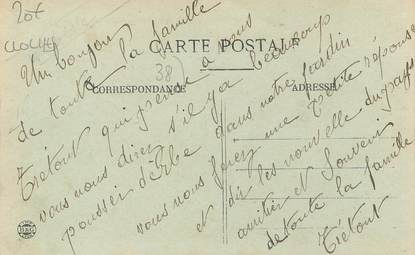 20f
CLOCHER
CARTE POSTALE
38
CORRESPONDANCE
ADRESSE
Un bonjour
de toute la famille
Trétout qui pense a vous
vous nous direz s'il y a beaucoup
pousser d'erbe dans notre jardin
vous nous ferez une petite réponse
et dir les nouvelle du pays
amitier et souvenir
de toute la famille
Trétout
B&G